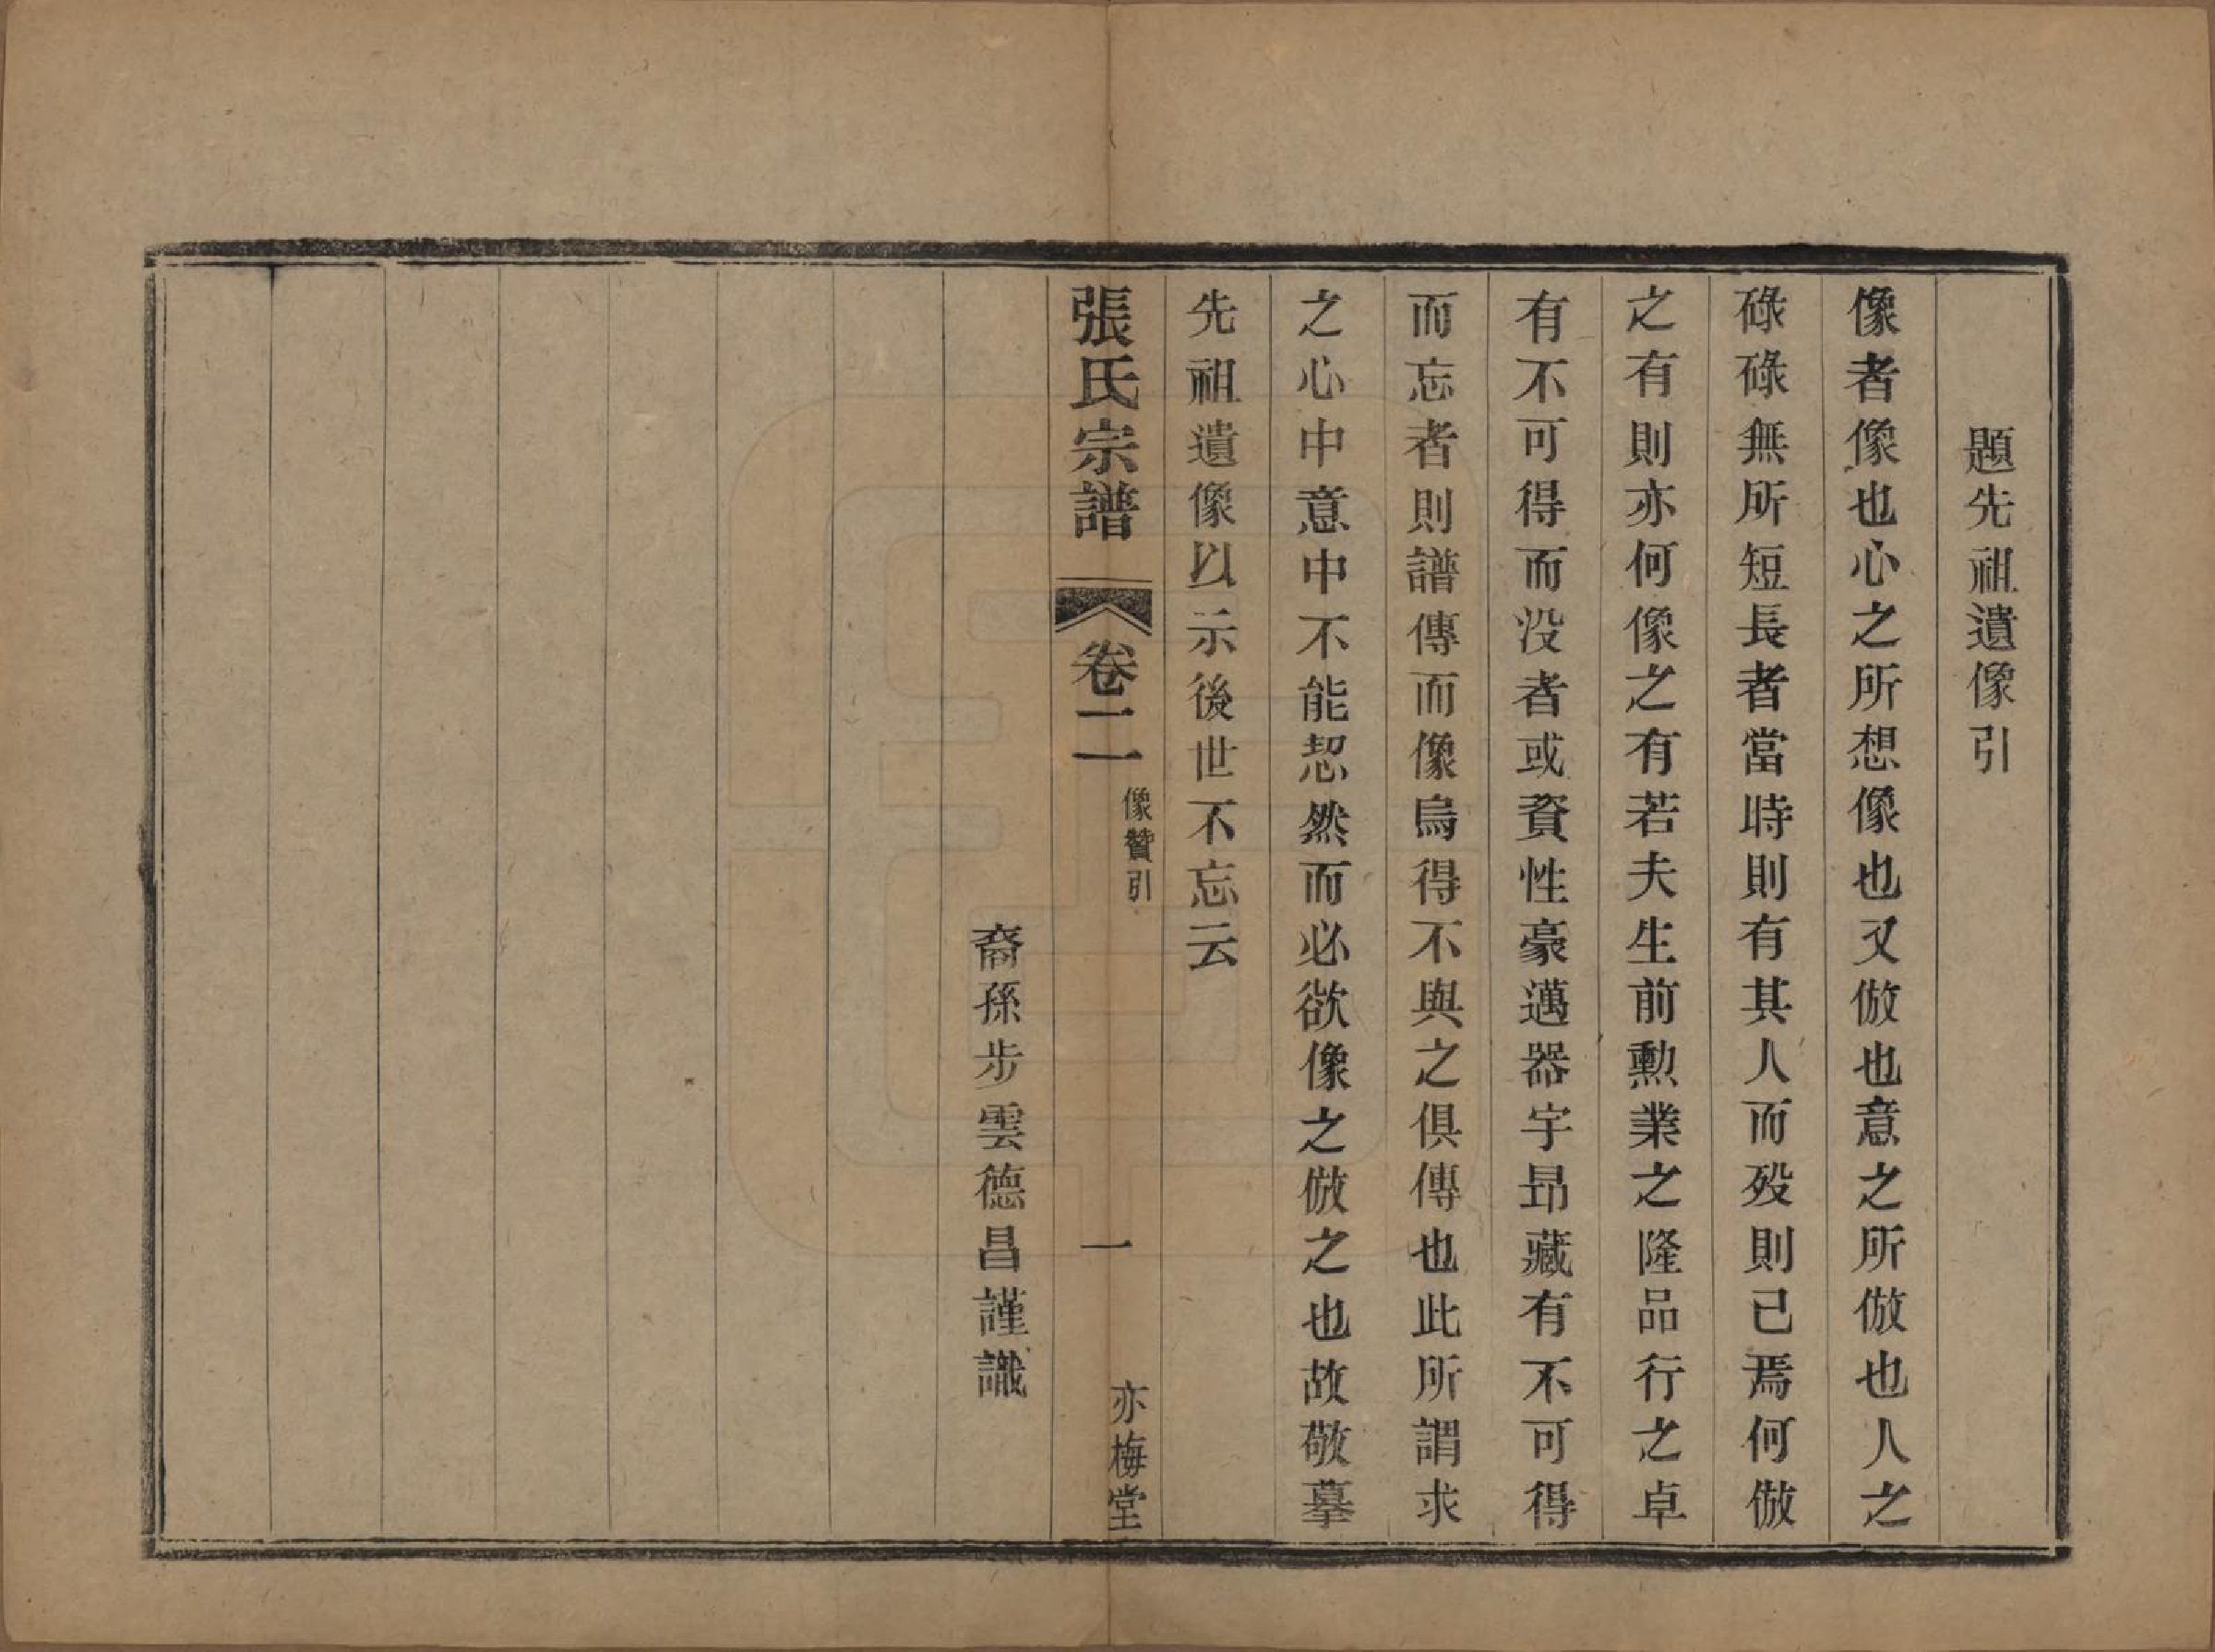 題先祖遺像引
像者像也心之所想像也又倣也意之所倣也人之
碌碌無所短長者當時則有其人而歿則已焉何倣
之有則亦何像之有若夫生前勲業之隆品行之卓
有不可得而没者或資性豪邁器宇昻藏有不可得
而忘者則譜傳而像烏得不與之俱傳也此所謂求
之心中意中不能恝然而必欲像之倣之也故敬摹
先祖遺像以示後世不忘云
張氏宗譜
卷二
像贊引
一
亦梅堂
裔孫步雲德昌謹識